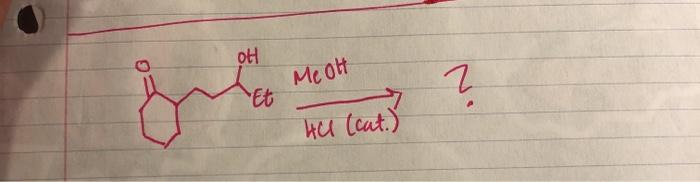 O
OH
Et
MeOH
HCl (cat.)
?